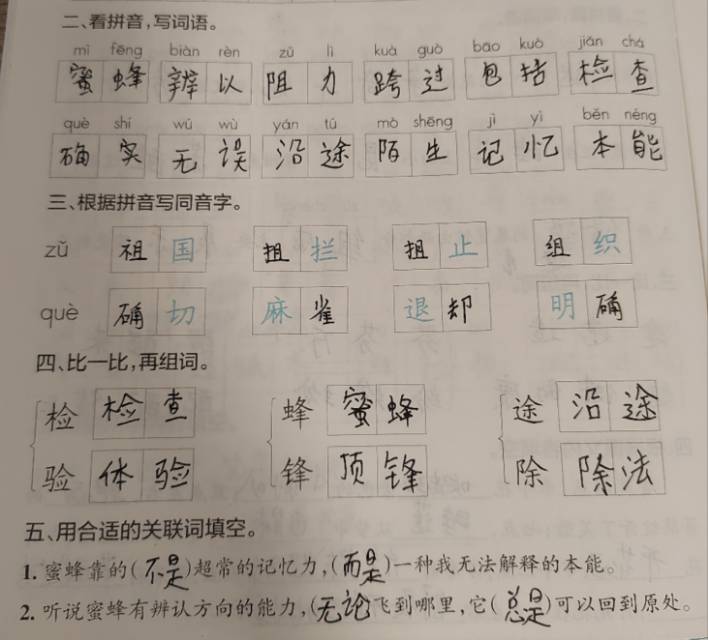 二、看拼音，写词语。
mì fēng biàn rèn zǔ lì kuà guò bāo kuò jiǎn chá
蜜蜂 辨以 阻力 跨过 包括 检查
què shí wú wù yán tú mò shēng jì yì běn néng
确实 无误 沿途 陌生 记忆 本能
三、根据拼音写同音字。
zǔ 祖国 担拦 担止 组织
què 确切 麻雀 退却 明确
四、比一比，再组词。
检 检查 蜂 蜜蜂 途 沿途
验 体验 锋 顶锋 除 除法
五、用合适的关联词填空。
1. 蜜蜂靠的(不是)超常的记忆力，(而是)一种我无法解释的本能。
2. 听说蜜蜂有辨认方向的能力，(无论)飞到哪里，它(总是)可以回到原处。